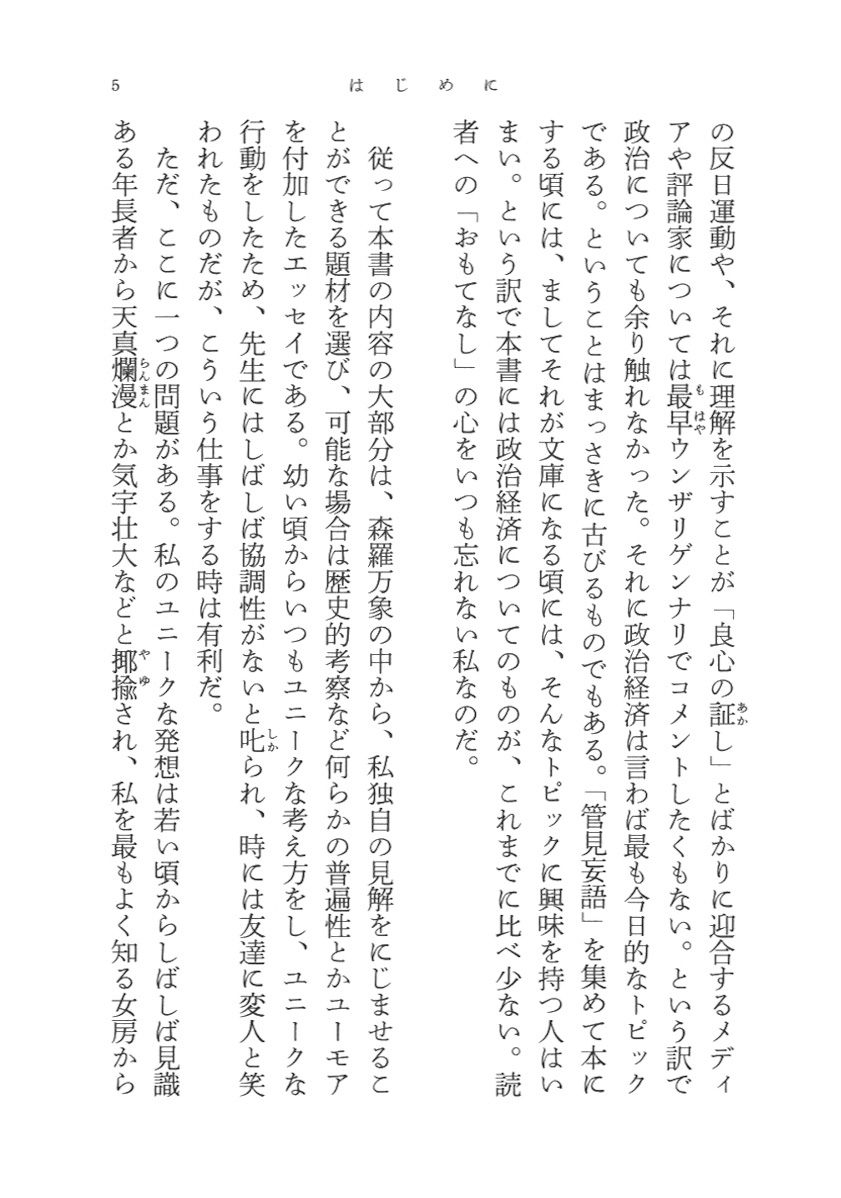 5
はじめに
の反日運動や、それに理解を示すことが「良心の証し」とばかりに迎合するメディ
アや評論家については最早ウンザリゲンナリでコメントしたくもない。という訳で
政治についても余り触れなかった。それに政治経済は言わば最も今日的なトピック
である。ということはまっさきに古びるものでもある。「管見妄語」を集めて本に
する頃には、ましてそれが文庫になる頃には、そんなトピックに興味を持つ人はい
まい。という訳で本書には政治経済についてのものが、これまでに比べ少ない。読
者への「おもてなし」の心をいつも忘れない私なのだ。
従って本書の内容の大部分は、森羅万象の中から、私独自の見解をにじませるこ
とができる題材を選び、可能な場合は歴史的考察など何らかの普遍性とかユーモア
を付加したエッセイである。幼い頃からいつもユニークな考え方をし、ユニークな
行動をしたため、先生にはしばしば協調性がないと叱られ、時には友達に変人と笑
われたものだが、こういう仕事をする時は有利だ。
ただ、ここに一つの問題がある。私のユニークな発想は若い頃からしばしば見識
ある年長者から天真爛漫とか気宇壮大などと揶揄され、私を最もよく知る女房から